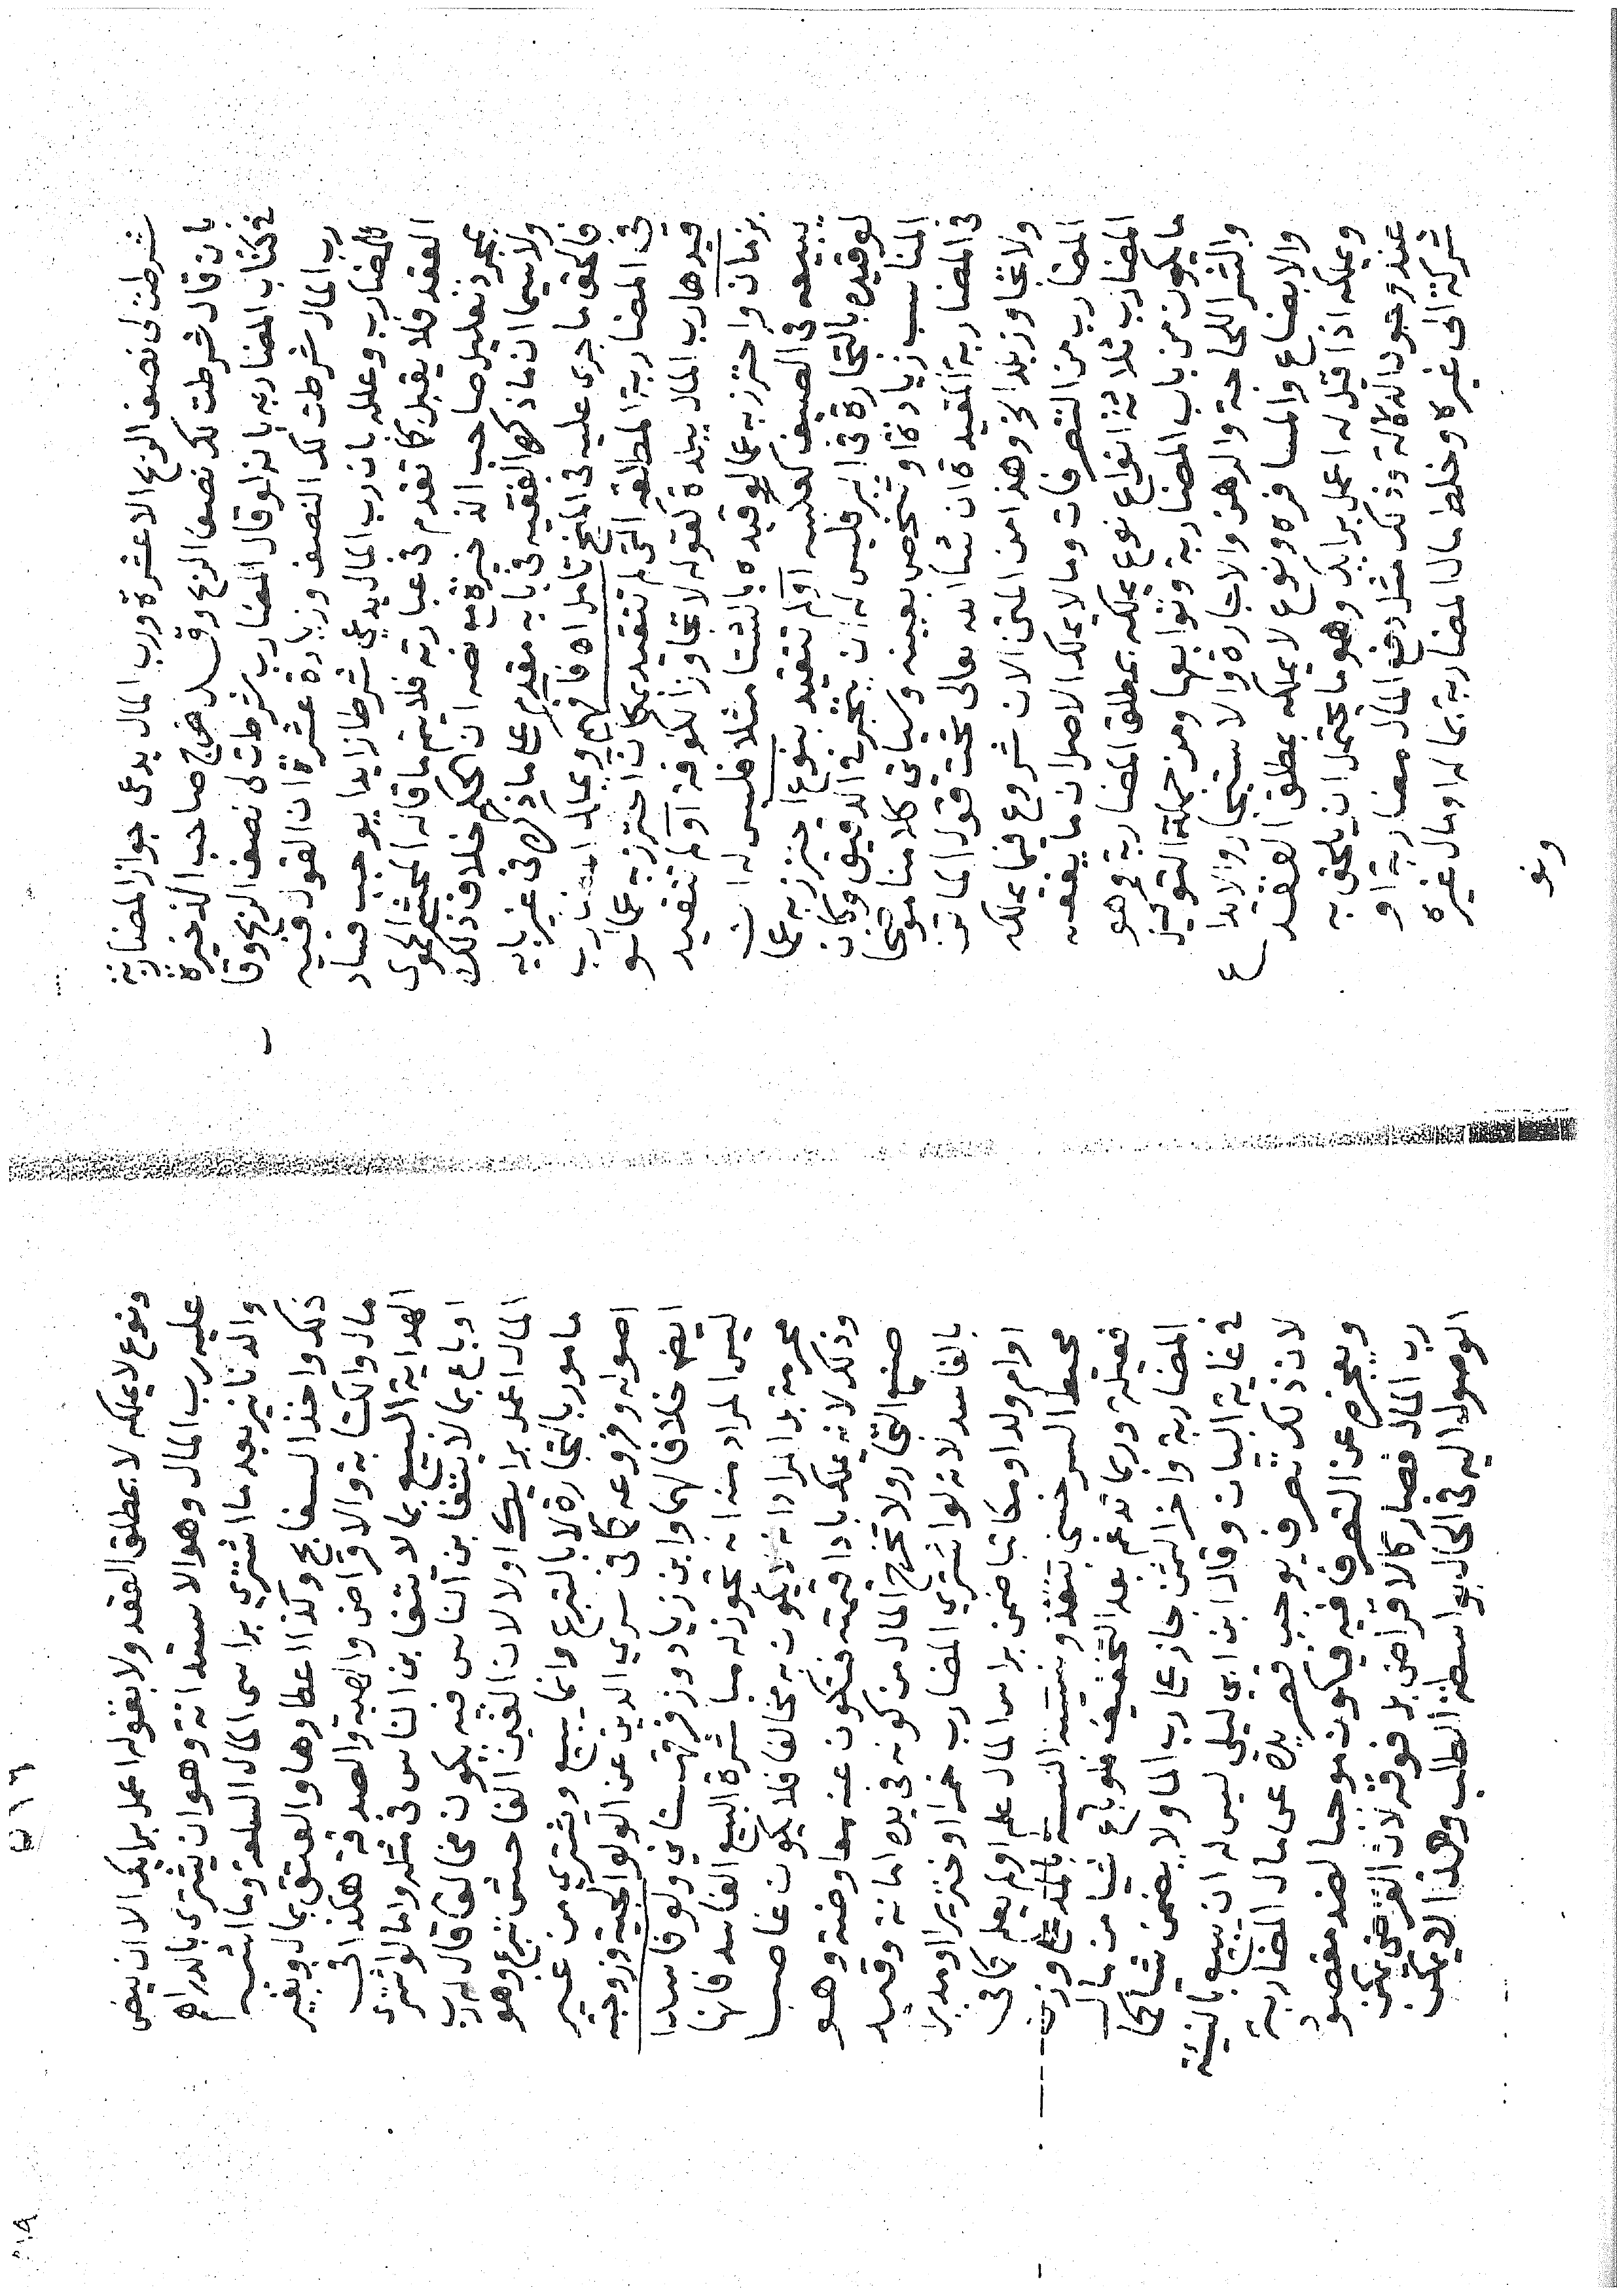 شرطت لى نصف الربح الا عشرة ورب المال يدعى جواز المضاربة
بان قال شرطت لك نصف الربح وقد صرح صاحب الذخيرة
فى كتاب المضاربة بانه لو قال المضارب شرطت لى نصف الربح وقا
رب المال شرطت لك النصف وزيادة عشرة ان القول فيه
للمضارب وعلله بان رب المال يدعي شرطا زايدا يوجب فساد
العقد فلا يقبل كما تقدم فى عبارته فلا يتم ما قاله المحشى الحموى
بمجرد تعليل صاحب الذخيرة مع نصه ان الحكم خلاف ذلك
ولا سيما ان ما ذكره الفقيه فى بابه مقدم على ما ذكره فى غير بابه
فالحق ما جرى عليه فى المنح تامل اه فافهم ويملك المضارب
فى المضاربة المطلقه التى لم تتقيد بمكان احترز به عما لو
قيدها رب المال ببلدة كقوله لا تجاوز الكوفة او لم تتقيد
بزمان واحترز به عما لو قيده بالشتا مثلا فليس له ان
يبيعه فى الصيف كعكسه او لم تتقيد بنوع احترز به عما
لو قيده بالتجارة فى البز فليس له ان يتجر فى الدقيق وكان
المناسب زيادة او شخص بعينه وسياتى كلامنا موضحا
فى المضاربة المقيدة ان شا الله تعالى تحت قول الماتن
ولا تجاوز بلد الخ وهذا من المتن الان شروع فيما يملكه
المضارب من التصرفات وما لا يملك الاصل ان ما يفعله
المضارب ثلاثة انواع نوع يملكه بمطلق المضاربة وهو
ما يكون من باب المضاربة وتوابعها ومن جملته التوكيل
والشرا للحاجة والرهن والاجارة والاستيجار والايداع
والابضاع والمسافرة ونوع لا يملكه بمطلق العقد
ويملكه اذا قيل له اعمل برايك وهو ما يحتمل ان يلحق به
عند وجود الدلالة وذلك مثل دفع المال مضاربة او
شركة الى غيره وخلط مال المضاربة بماله او مال غيره
ونو
ونوع لا يملكه لا بمطلق العقد ولا بقوله اعمل برايك الا ان ينص
عليه رب المال وهو الاستدانة وهو ان يشترى بالدراهم
والدنانير بعد ما اشترى براس المال السلعة وما اشبه
ذلك واخذ السفاتج وكذا اعطاوها والعتق بمال وبغير
مال والكتابة والاقراض والهبة والصدقة هكذا فى
الهداية البيع بما لا يتغابن الناس فى مثله واما لو اشترى
او باع بما لا يتغابن الناس فيه يكون مخالفا قال له رب
المال اعمل برايك او لا لان الغبن الفاحش تبرع وهو
مامور بالتجارة لا بالتبرع وانما يبيع ويشترى من غير
اصوله وفروعه كما فى سرى الدين عن الولوالجية وزوجته
ايضا خلافا لهما وابن زياد وزفر قهستانى ولو فاسدا
ليس المراد منه انه تجوز له مباشرة البيع الفاسد فانها
محرمة بل المراد انه لا يكون به مخالفا فلا يكون غاصبا
وذلك لانه يملك باداء قيمته فتكون عنه معاوضة وهو
صنع التجار ولا تخرج المال من كونه فى يده امانة وقيد
بالفاسد لانه لو اشترى المضارب خمرا او خنزيرا او مدبرا
او ام ولد او مكاتبا ضمن براس المال علم او لم يعلم كما فى
محيط السرخسى بنقد ونسئة النسئة بالمد على وزن
فعيلة وربما تدغم بعد التخفيف فلو باع شيا من مال
المضاربة واخر الثمن جاز على رب المال ولا يضمن شيا كما
فى غاية البيان وقال ابن ابي ليلى ليس له ان يبيع بالنسئة
لان ذلك تصرف يوجب قصر يده عن مال المضاربة
ويعجزه عن التصرف فيه فيكون موجبا لضد مقصود
رب المال فصار كالاقراض بل فوقه لان القرض يمكن
الوصول اليه فى الحال بواسطة الطلب وهذا لا يمكن